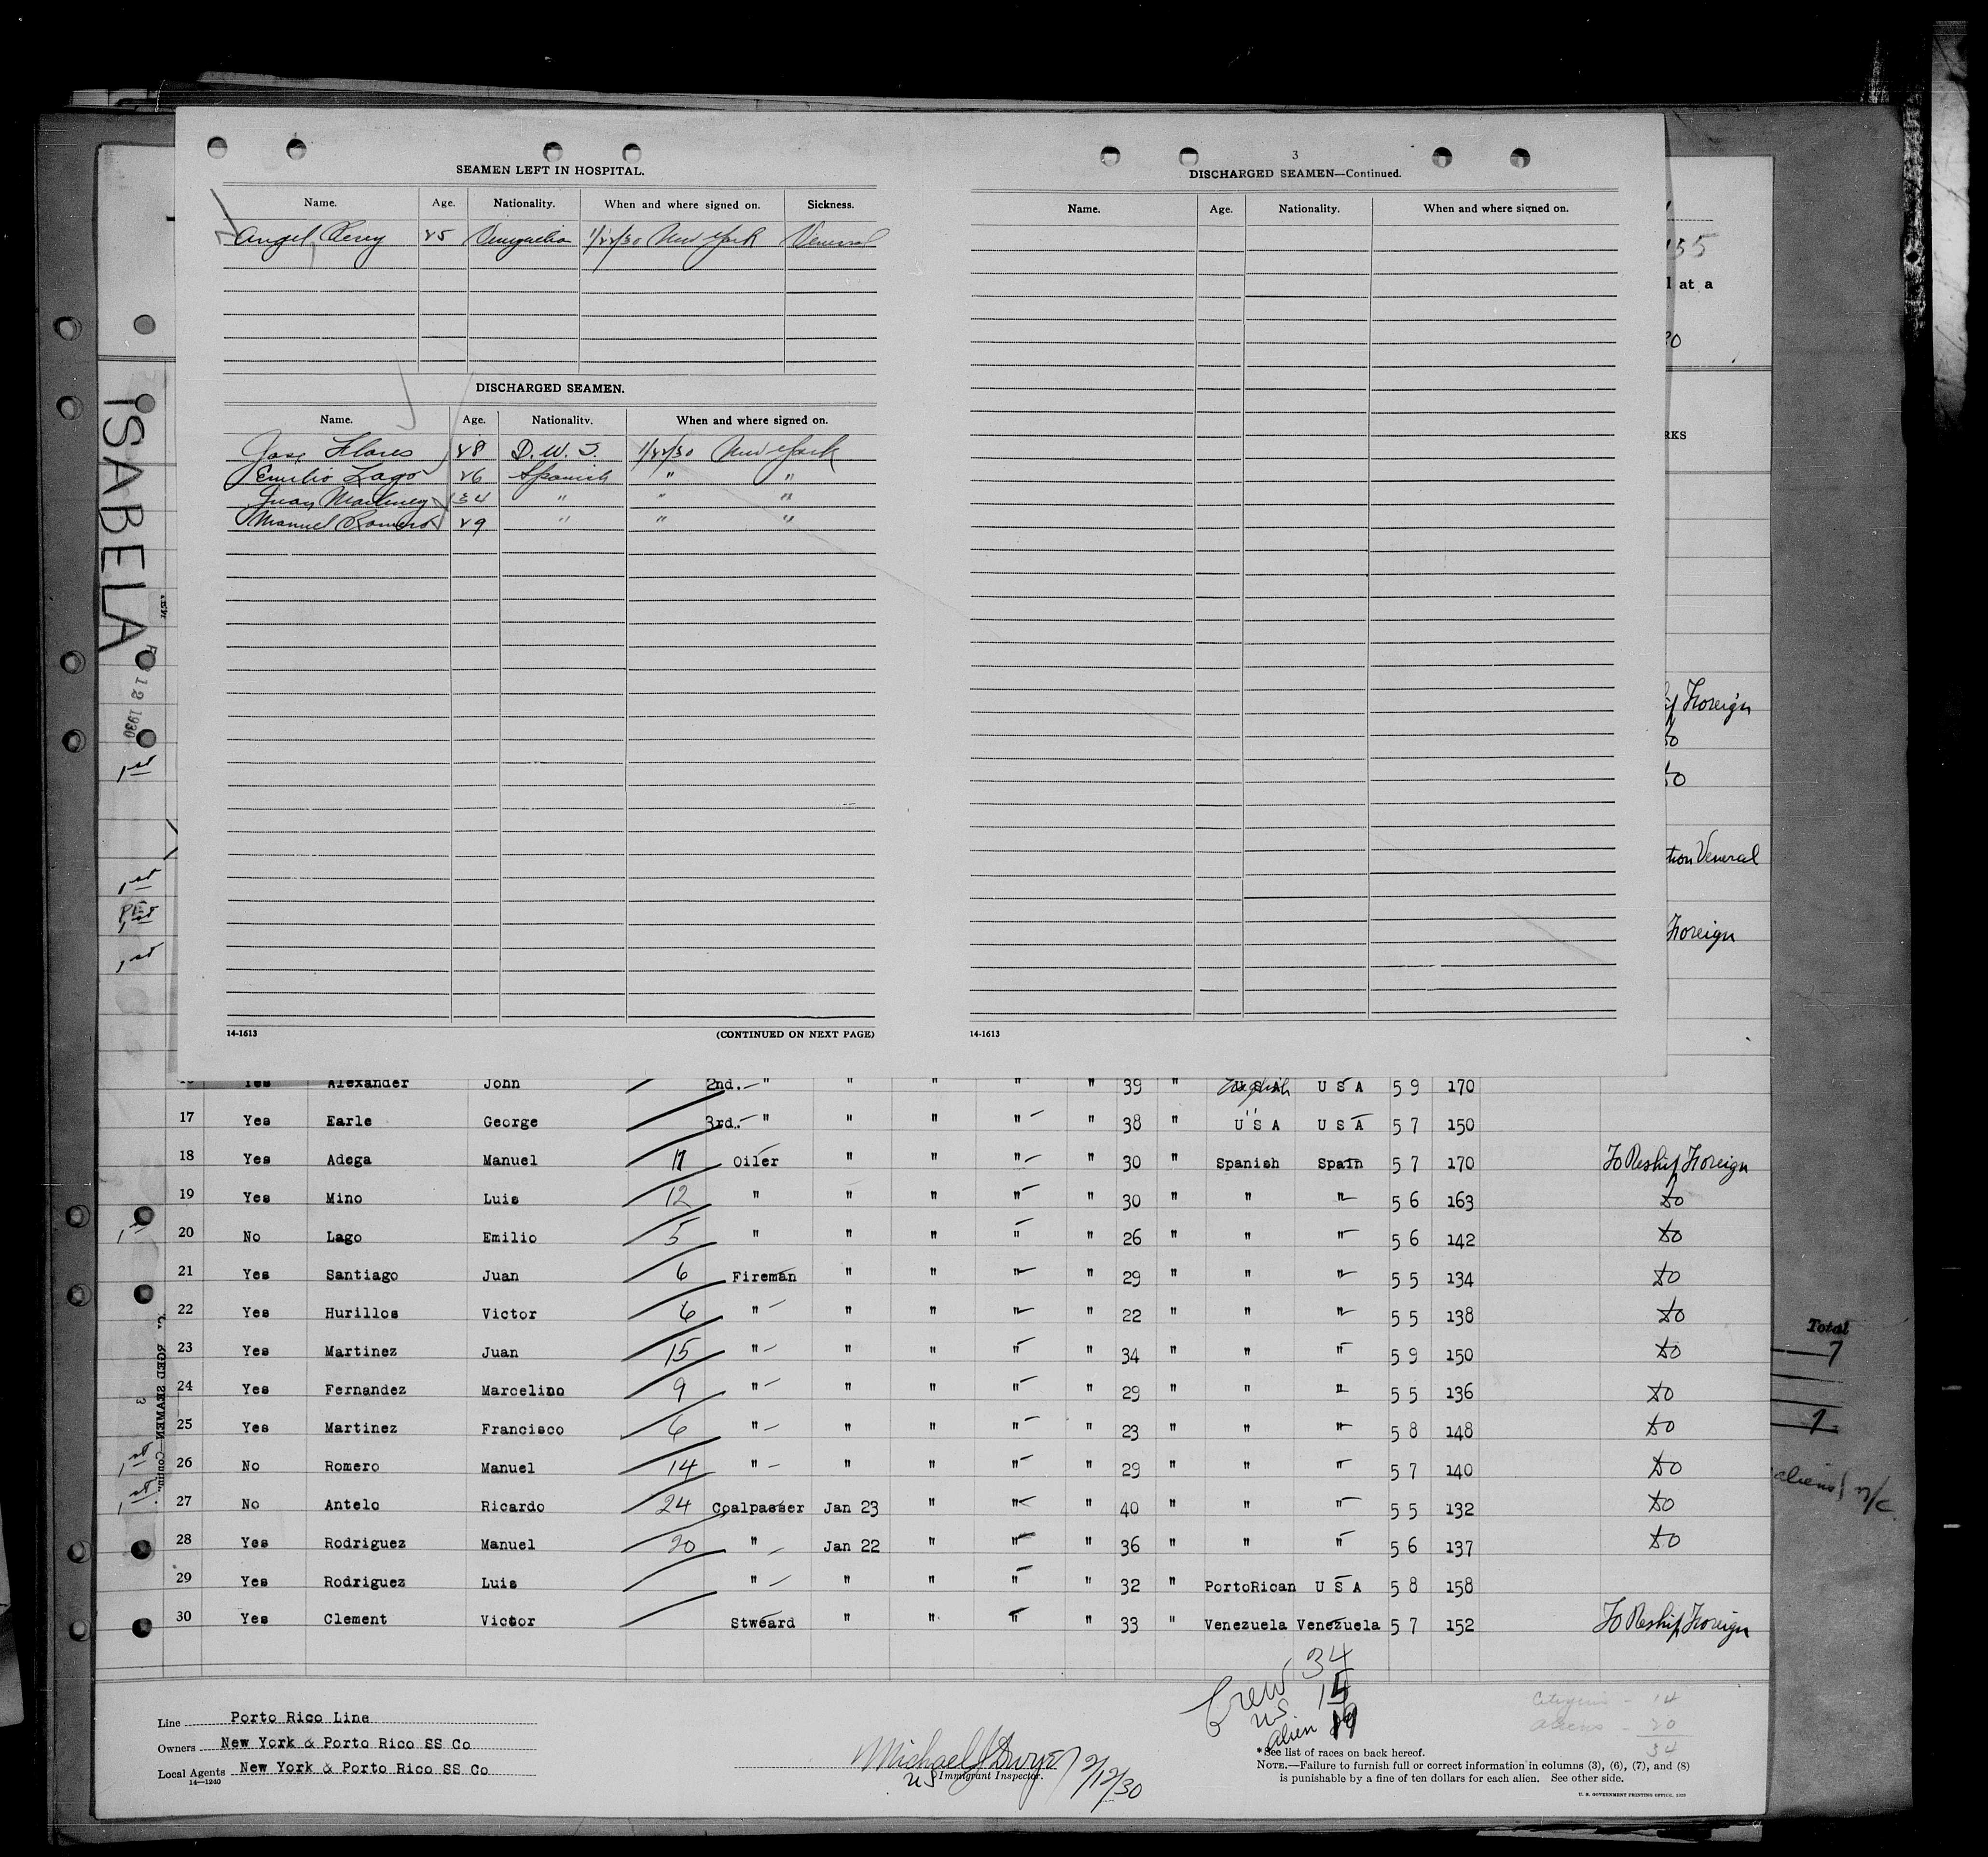 SEAMEN LEFT IN HOSPITAL.
Name. Age. Nationality. When and where signed on. Sickness.
Angel Perez 25 Venezuelan 1/22/30 New York Veneral
DISCHARGED SEAMEN.
Name. Age. Nationality. When and where signed on.
Jose Flores 28 D.W.I. 1/22/30 New York
Emilio Lago 26 Spanish " "
Juan Martinez 34 " " "
Manuel Romero 29 " " "
14-1613 (CONTINUED ON NEXT PAGE)
3
DISCHARGED SEAMEN—Continued.
Name. Age. Nationality. When and where signed on.
14-1613
ISABELA
12 1930
1st
1st
1st
1st
55
l at a
RKS
Foreign
do
do
tion Veneral
Foreign
Yes Alexander John 2nd. " " " " " 39 " English U S A 5 9 170
17 Yes Earle George 3rd. " " " " " 38 " U S A U S A 5 7 150
18 Yes Adega Manuel 11 Oiler " " " " 30 " Spanish Spain 5 7 170 To Reship Foreign
19 Yes Mino Luis 12 " " " " " 30 " " " 5 6 163 do
20 No Lago Emilio 5 " " " " " 26 " " " 5 6 142 do
21 Yes Santiago Juan 6 Fireman " " " " 29 " " " 5 5 134 do
22 Yes Hurillos Victor 6 " " " " " 22 " " " 5 5 138 do
23 Yes Martinez Juan 15 " " " " " 34 " " " 5 9 150 do
24 Yes Fernandez Marcelino 9 " " " " " 29 " " " 5 5 136 do
25 Yes Martinez Francisco 6 " " " " " 23 " " " 5 8 148 do
26 No Romero Manuel 14 " " " " " 29 " " " 5 7 140 do
27 No Antelo Ricardo 24 Coalpasser Jan 23 " " " 40 " " " 5 5 132 do
28 Yes Rodriguez Manuel 20 " Jan 22 " " " 36 " " " 5 6 137 do
29 Yes Rodriguez Luis " " " " " 32 " PortoRican U S A 5 8 158
30 Yes Clement Victor Stweard " " " " 33 " Venezuela Venezuela 5 7 152 To Reship Foreign
Total
7
aliens
Crew 34
US
alien
Citizens - 14
Aliens - 20
34
Line Porto Rico Line
Owners New York & Porto Rico SS Co
Local Agents New York & Porto Rico SS Co
14-1240
Michael J Dwyer 2/12/30
US Immigrant Inspector.
*See list of races on back hereof.
NOTE.—Failure to furnish full or correct information in columns (3), (6), (7), and (8)
is punishable by a fine of ten dollars for each alien. See other side.
U. S. GOVERNMENT PRINTING OFFICE, 1929